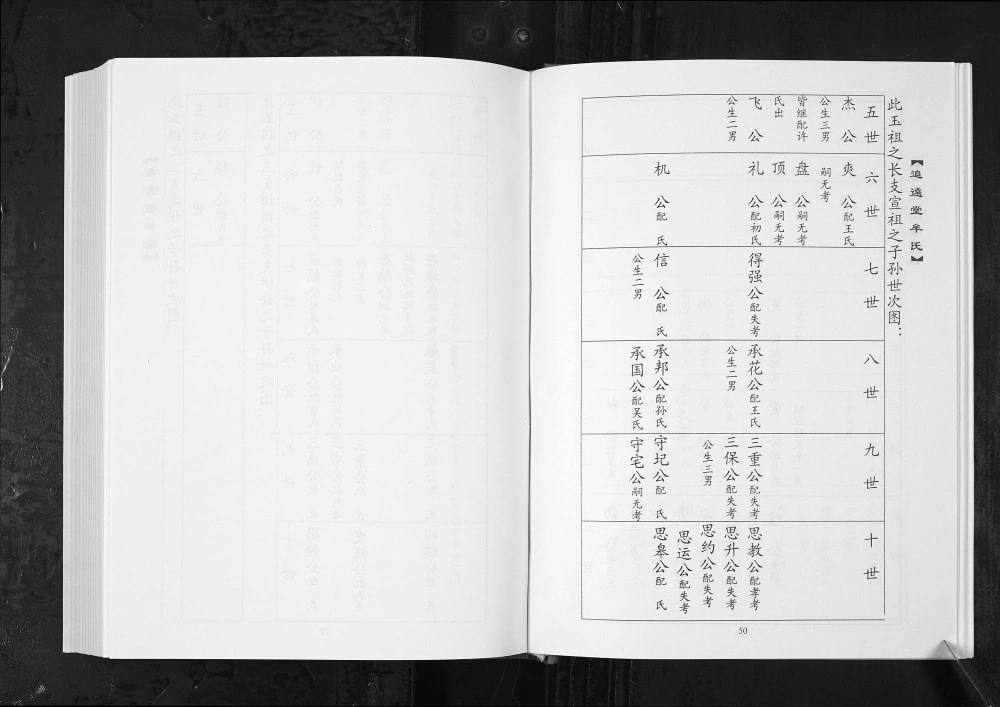 【追遠堂牟氏】
此玉祖之长支宣祖之子孙世次图：
五世
杰公
公生三男
皆继配许
氏出
飞公
公生二男
六世
爽公配王氏
嗣无考
盘公嗣无考
顶公嗣无考
礼公配初氏
机公配 氏
七世
得强公配失考
信公配 氏
公生二男
八世
承花公配王氏
公生二男
承邦公配孙氏
承国公配吴氏
九世
三重公配失考
三保公配失考
公生三男
守圮公配 氏
守宅公嗣无考
十世
思教公配孝考
思升公配失考
思约公配失考
思运公配失考
思皋公配 氏
50